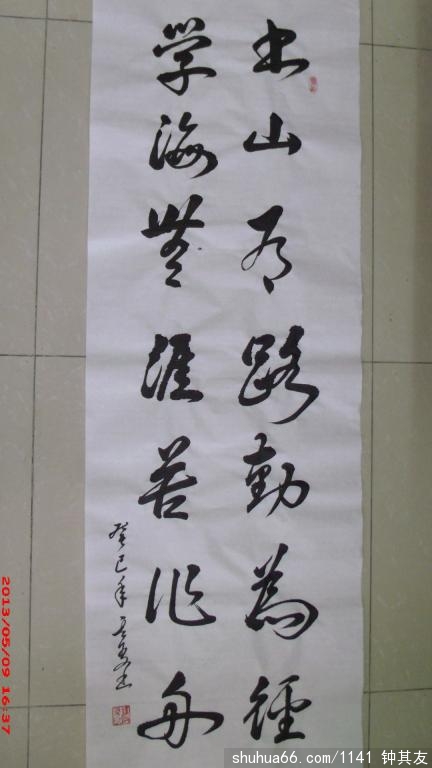 书山有路勤為径
学海無涯苦作舟
癸巳年
2013/05/09 16:37
shuhua66.com/1141 钟其友